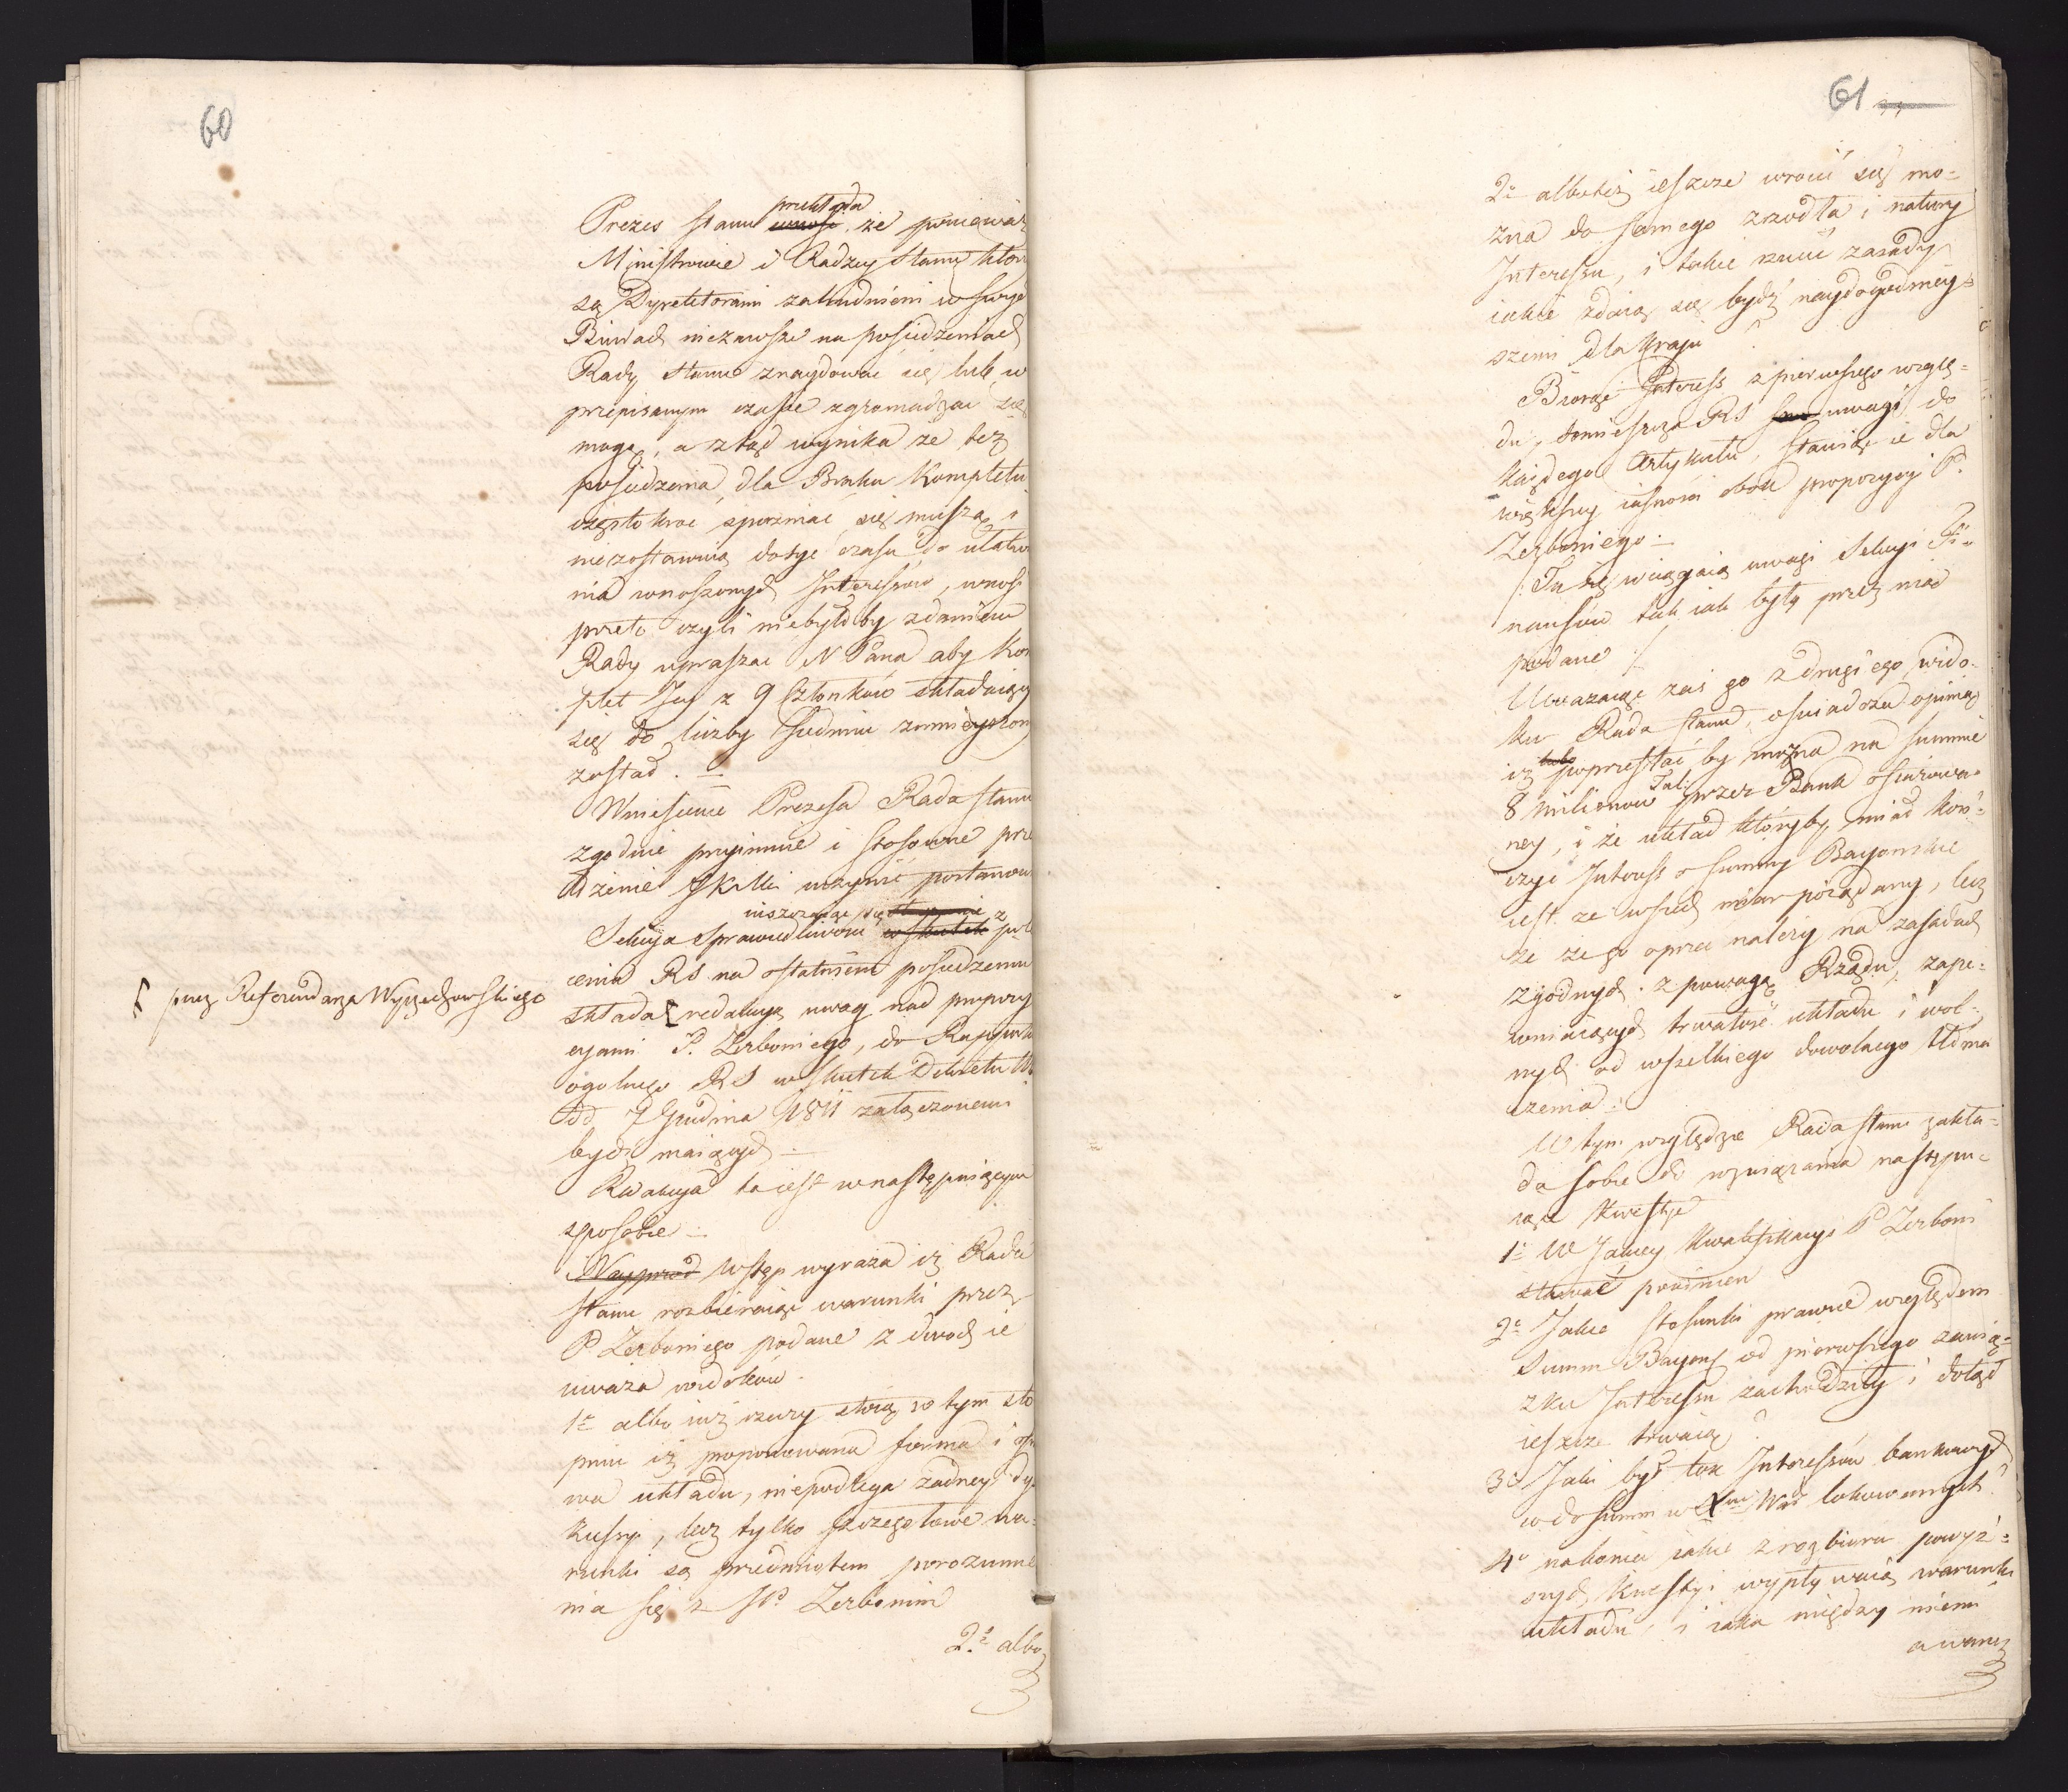 60
Prezes Stanu wnosi przekłada, że ponieważ
Ministrowie i Radzcy Stanu którz
są Dyrektorami zatrudnieni w swych
Biurach niezawsze na posiedzeniach
Rady Stanu znaydować się lub w
przepisanym czasie zgromadzać się
mogą, a ztąd wynika że też
posiedzenia, dla Braku Kompletu
częstokroć spóźniać się muszą, i
niezostawuią dosyć czasu do ułatwie
nia wnoszonych Interessów, wnosi
przeto czyli niebyłoby zdaniem
Rady upraszać N Pana aby Kom
plet Jey z 9 Członków składaiący
się do liczby siedmiu zmnieyszony
został. —
Wniesienie Prezesa Rada Stanu
zgodnie przyimuie i stosowne prze
dzenie JKMci uczynić postanow
Sekcya sprawiedliwości uiszczaiąc się w skutek z pole
cenia RS na ostatniem posiedzeniu
składa redakcyą uwag nad propozy
[ przez Referendarza Wyczechowskiego
cyami P. Zerboniego, do Rapportu
ogolnego RS w skutek Dekretu
dd 7 Grudnia 1811 załączonemi
bydź maiących —
Redakcya ta iest w następuiącym
sposobie —
Nayprzod Wstęp wyraża iż Rada
Stanu rozbieraiąc warunki przez
P Zerboniego podane z dwoch ie
uważa widoków.
1e albo iuż rzeczy stoią w tym sto
pniu iż proponowana forma i osno
wa układu, niepodlega żadney dys
kussyi, lecz tylko szczegołowe wa-
runki są przedmiotem porozumie
nia się z JP. Zerbonim
2e albo
61
2e albo też ieszcze wrocić się mo-
żna do samego zrzodła i natury
Interessu, i takie rzucić zasady
iakie zdaią się bydź naydogodniey-
szemi dla Kraju.
Biorąc Interess z pierwszego wzglę-
du, domieszcza RS uwagi do
każdego Artykułu, stawiąc ie dla
większey iasności obok propozycyi P.
Zerboniego —
/: Tu się wciągaią uwagi Sekcyi Fi-
nansów tak iak były przez nią
podane :/
Uważaiąc zaś go z drugiego wido-
ku Rada Stanu, oświadcza opinią
iż poprzestać by można na summie
8 Milionow Tal: przez Bank ofiarowa-
ney, i że układ któryby miał koń-
czyć Interess o Summy Bayonskie
iest ze wszech miar pożądany, lecz
że że go oprzeć należy na zasadach
zgodnych z powagą Rządu, zape-
wniaiących trwałość układu i wol-
nych od wszelkiego dowolnego tłóma
czenia —
W tym względzie Rada Stanu zakła-
da sobie do rozwiązania następu-
iące Kwestye
1e W Jakiey Kwalifikacyi P Zerboni
stawać powinien
2e Jakie stosunki prawne względem
Summ Bayoń: od pierwszego zawią-
zku Interessu zachodziły i dotąd
ieszcze trwaią?
3e Jaki był tok Interessów bankowych
wdo Summ w Xie War lokowanych?
4o nakoniec iakie z rozbioru powyż-
szych kwestyi wypływaią warunki
układu, i iaka między niemi
a warun